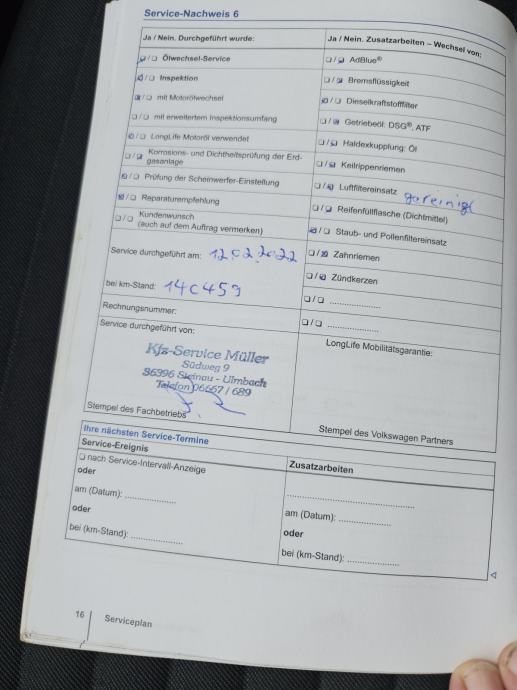 Service-Nachweis 6
Ja / Nein. Durchgeführt wurde:
☑/❏ Ölwechsel-Service
☑/❏ Inspektion
☑/❏ mit Motorölwechsel
❏/❏ mit erweitertem Inspektionsumfang
☑/❏ LongLife Motoröl verwendet
❏/☑ Korrosions- und Dichtheitsprüfung der Erd-
gasanlage
☑/❏ Prüfung der Scheinwerfer-Einstellung
☑/❏ Reparaturempfehlung
❏/❏ Kundenwunsch
(auch auf dem Auftrag vermerken)
Service durchgeführt am: 12.02.2022
bei km-Stand: 140459
Rechnungsnummer:
Service durchgeführt von:
Kfz-Service Müller
Südweg 9
36396 Steinau - Ulmbach
Telefon 06667 / 689
Stempel des Fachbetriebs
Ja / Nein. Zusatzarbeiten – Wechsel von:
❏/☑ AdBlue®
❏/☑ Bremsflüssigkeit
☑/❏ Dieselkraftstofffilter
❏/☑ Getriebeöl: DSG®, ATF
❏/☑ Haldexkupplung: Öl
❏/☑ Keilrippenriemen
❏/☑ Luftfiltereinsatz gereinigt
❏/☑ Reifenfüllflasche (Dichtmittel)
☑/❏ Staub- und Pollenfiltereinsatz
❏/☑ Zahnriemen
❏/☑ Zündkerzen
❏/❏ ....................
❏/❏ ....................
LongLife Mobilitätsgarantie:
Stempel des Volkswagen Partners
Ihre nächsten Service-Termine
Service-Ereignis
❏ nach Service-Intervall-Anzeige
oder
am (Datum): ....................
oder
bei (km-Stand): ....................
Zusatzarbeiten
..................................................
am (Datum): ....................
oder
bei (km-Stand): ....................
16
Serviceplan